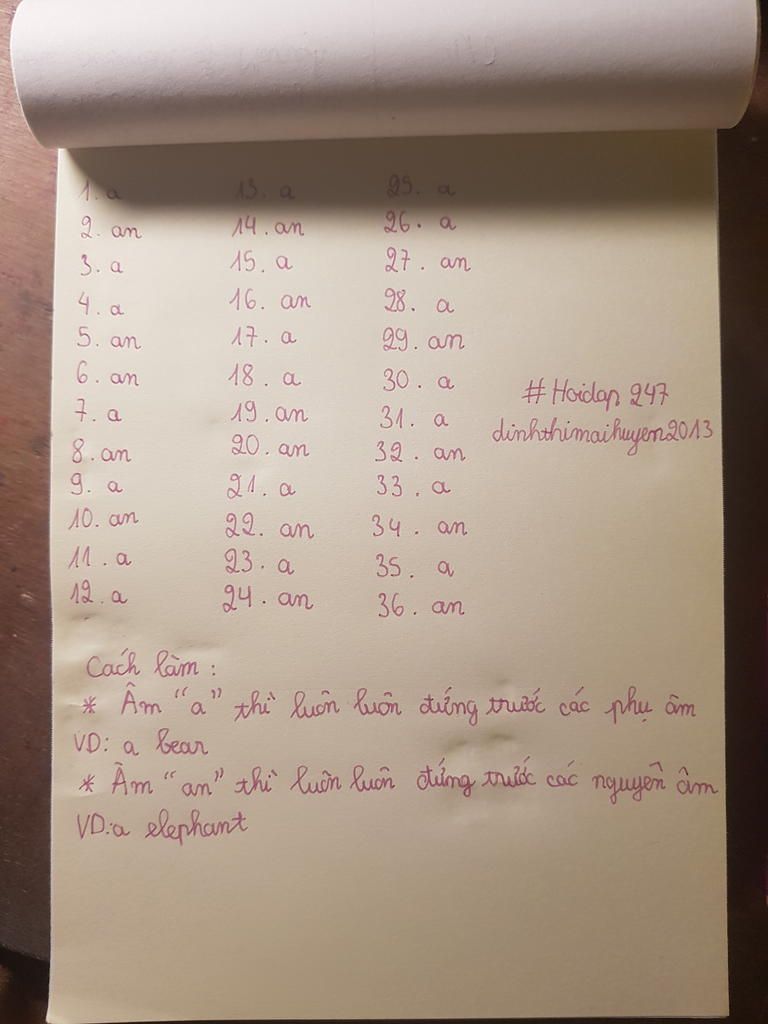 1. a
2. an
3. a
4. a
5. an
6. an
7. a
8. an
9. a
10. an
11. a
12. a
13. a
14. an
15. a
16. an
17. a
18. a
19. an
20. an
21. a
22. an
23. a
24. an
25. a
26. a
27. an
28. a
29. an
30. a
31. a
32. an
33. a
34. an
35. a
36. an
#Hoidap 247
dinhthimaihuyen2013
Cách làm :
* Âm "a" thì luôn luôn đứng trước các phụ âm
VD: a bear
* Âm "an" thì luôn luôn đứng trước các nguyên âm
VD: a elephant